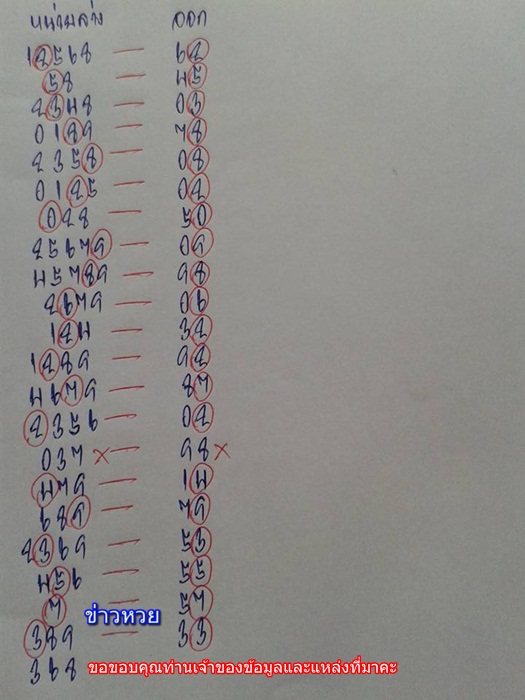 หน่วยล่าง ออก
12568 — 62
58 — 45
2348 — 03
0189 — 78
2358 — 08
0125 — 02
028 — 50
25679 — 09
45789 — 98
2679 — 06
124 — 32
1289 — 92
4679 — 87
2356 — 02
037 × 98 ×
479 — 14
689 — 79
2369 — 53
456 — 55
7 — 57
ข่าวหวย
389 — 33
368
ขอขอบคุณท่านเจ้าของข้อมูลและแหล่งที่มาคะ